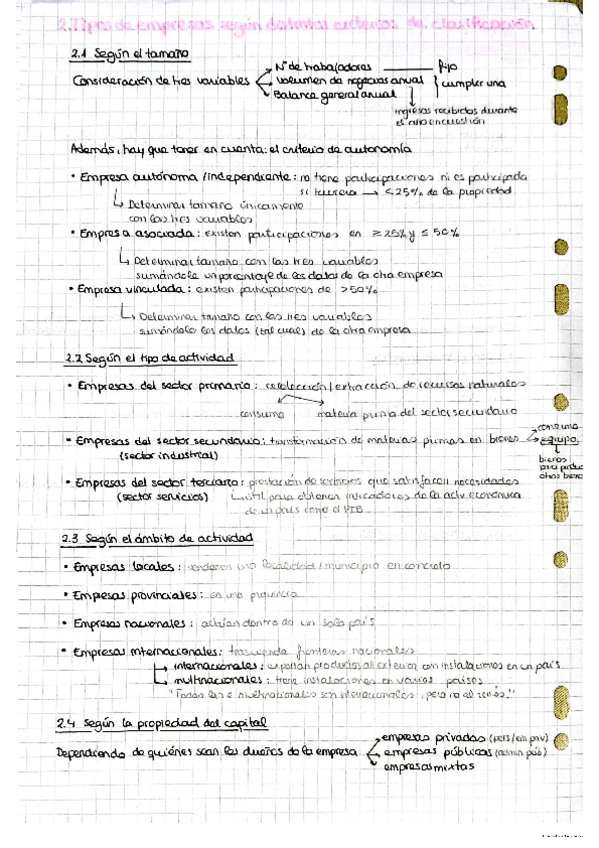 2. Tipos de empresas según distintos criterios de clasificación
2.1 Según el tamaño
Consideración de tres variables
Nº de trabajadores fijo
volumen de negocios anual
Balance general anual
cumplir una
ingresos recibidos durante
el año en cuestión
Además, hay que tener en cuenta: el criterio de autonomía
• Empresa autónoma / independiente: no tiene participaciones ni es participada
si tuviera → < 25% de la propiedad
Determinar tamaño únicamente
con las tres variables
• Empresa asociada: existen participaciones en ≥ 25% y ≤ 50%
Determinar tamaño con las tres variables
sumándole un porcentaje de los datos de la otra empresa
• Empresa vinculada: existen participaciones de > 50%
Determinar tamaño con las tres variables
sumándole los datos (tal cual) de la otra empresa
2.2 Según el tipo de actividad
• Empresas del sector primario: recolección / extracción de recursos naturales
consumo materia prima del sector secundario
• Empresas del sector secundario: transformación de materias primas en bienes
(sector industrial)
consumo
equipo
bienes
para produc
otros biene
• Empresas del sector terciario: prestación de servicios que satisfacen necesidades
(sector servicios) útil para obtener indicadores de la activ económica
de un país como el PIB
2.3 Según el ámbito de actividad
• Empresas locales: una localidad / municipio en concreto
• Empresas provinciales: en una provincia
• Empresas nacionales: actúan dentro de un solo país
• Empresas internacionales: fronteras nacionales
internacionales: exportan productos al exterior con instalaciones en un país
multinacionales: tiene instalaciones en varios países
"Todas las multinacionales son internacionales, pero no al revés."
2.4 Según la propiedad del capital
Dependiendo de quiénes sean los dueños de la empresa
empresas privadas (pers/em priv)
empresas públicas (admin pub)
empresas mixtas